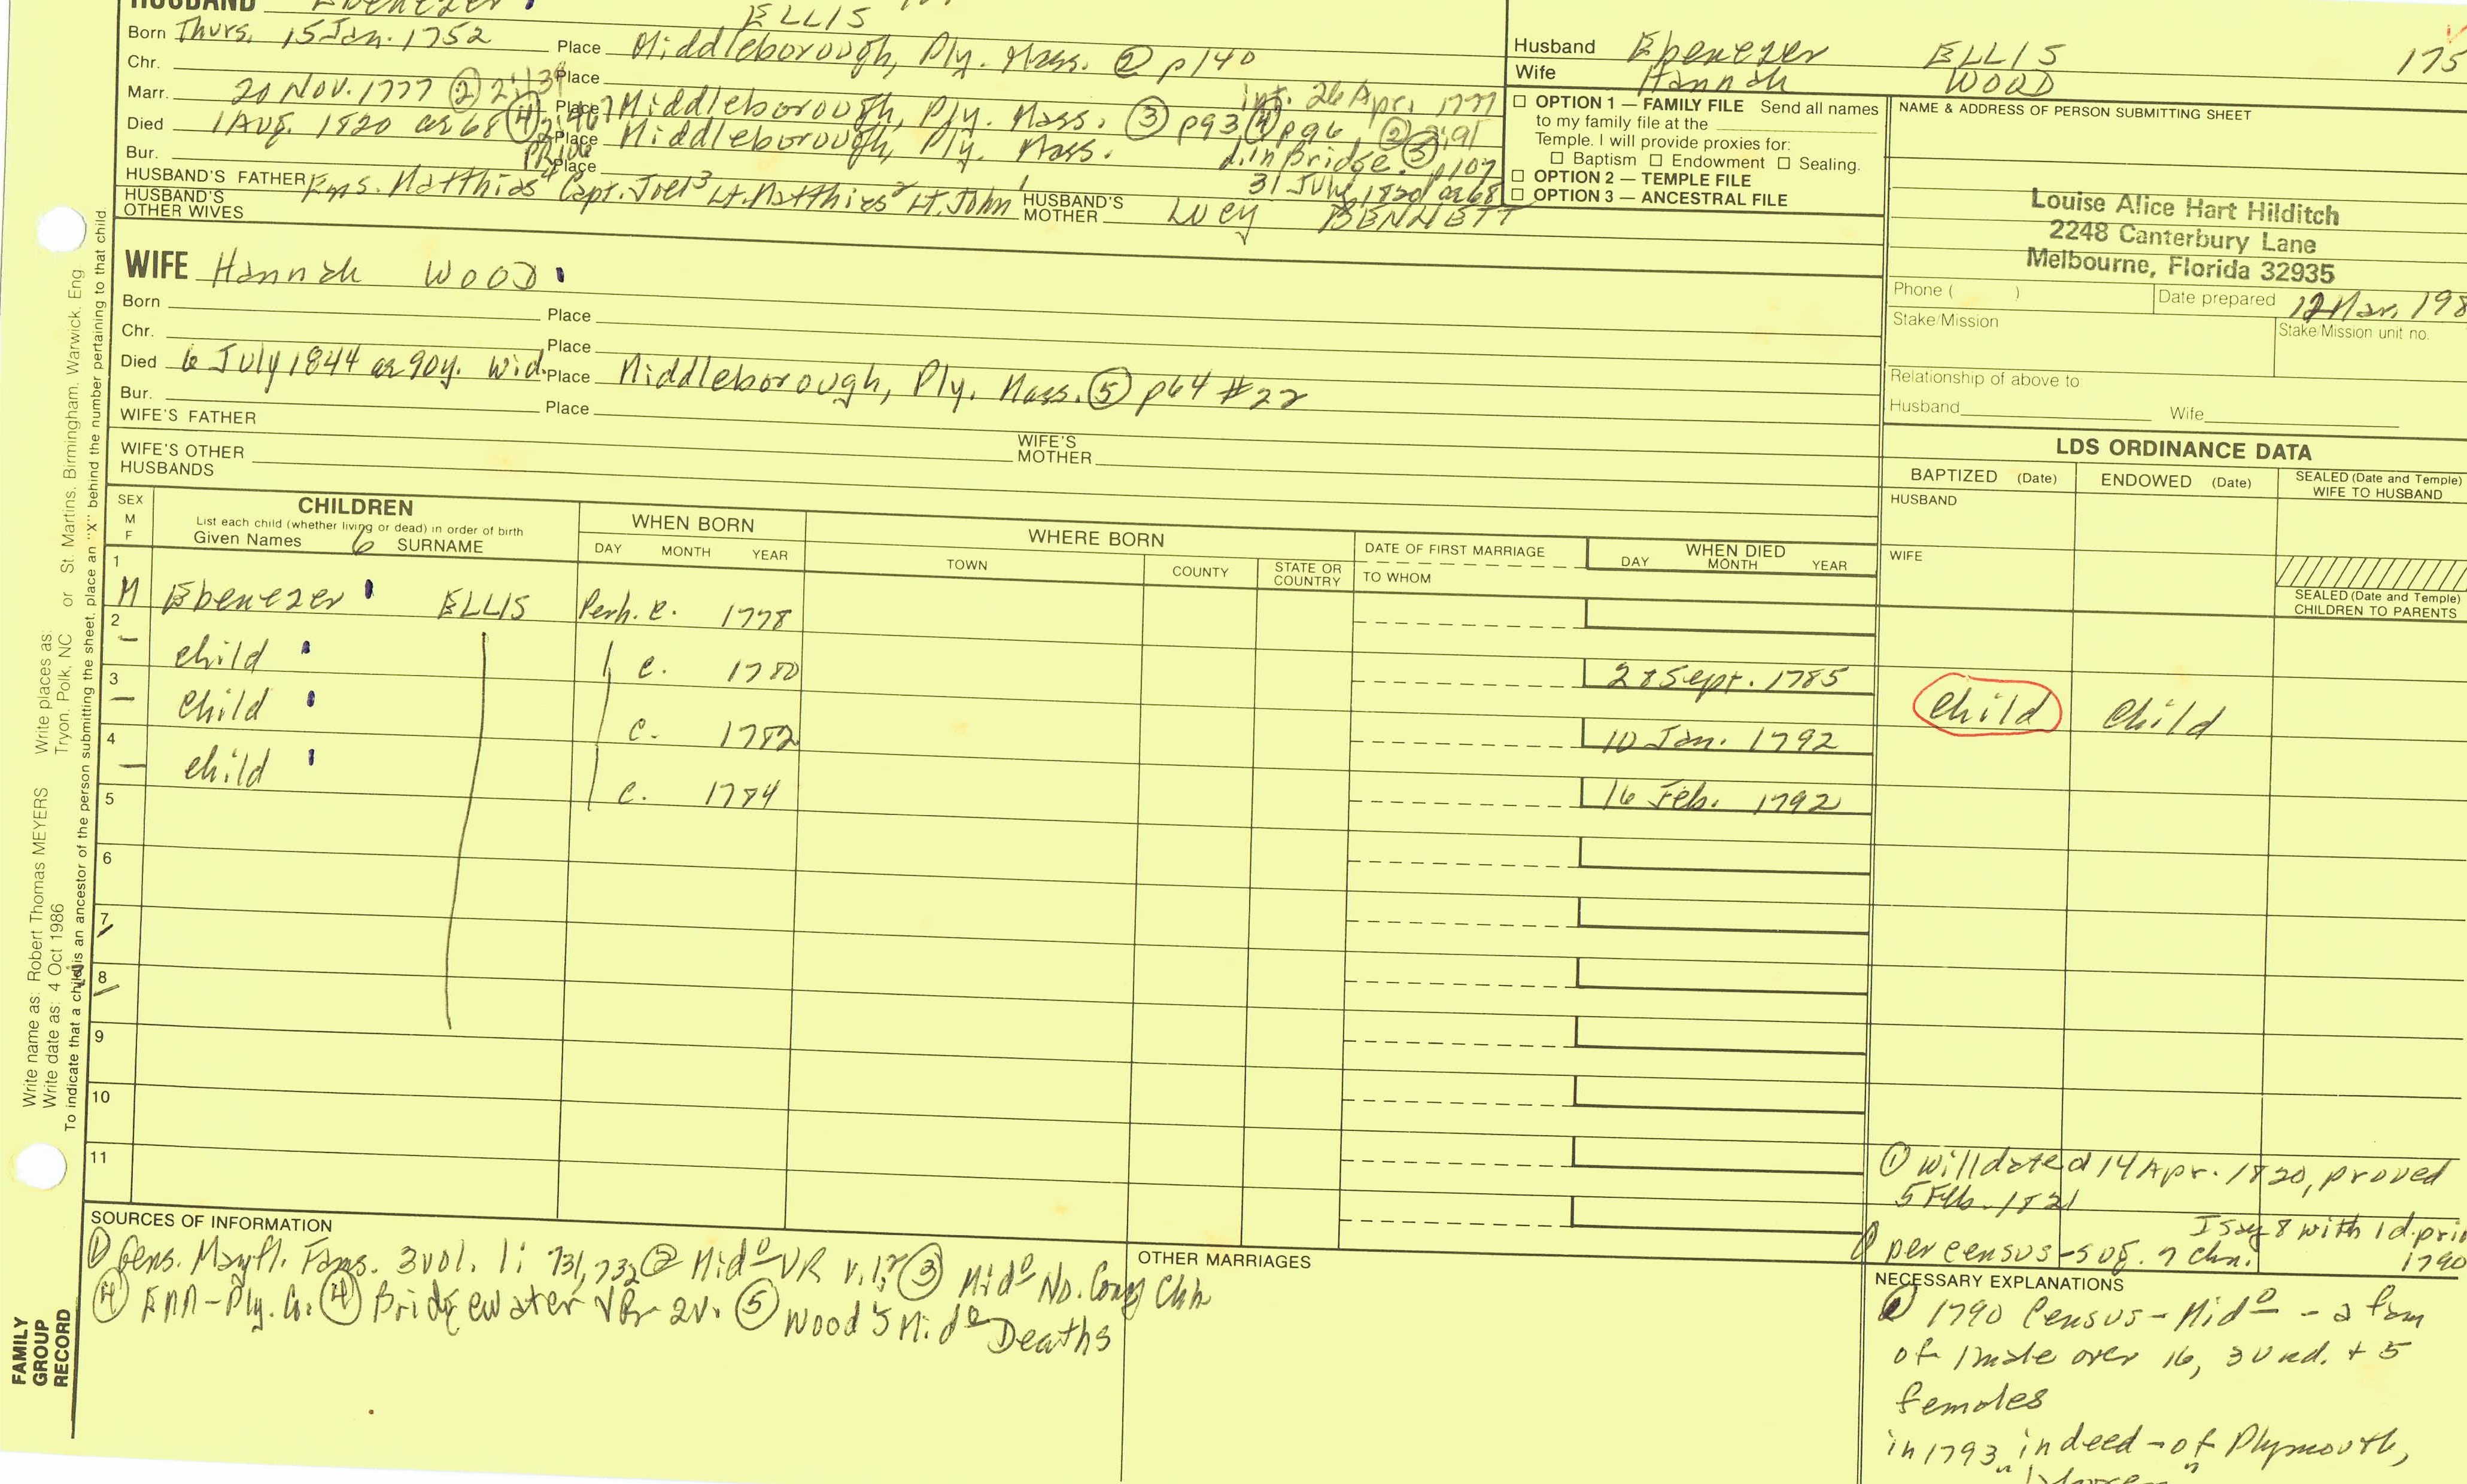 HUSBAND Ebenezer ELLIS
Born Thurs. 15 Jan. 1752 Place Middleborough, Ply. Mass. ② p140
Chr. Place
Marr. 20 Nov. 1777 ② Place Middleborough, Ply. Mass. ③ p93, ④ p96 int. 26 Apr. 1777
Died 1 Aug. 1820 ae 68 ④ Place Middleborough, Ply. Mass. d. in Bridge. ③ p107
Bur. Place 31 July 1820 ae 68
HUSBAND'S FATHER Ens. Matthias⁴ Capt. Joel³ Lt. Matthias² Lt. John¹ HUSBAND'S MOTHER Lucy BENNETT
HUSBAND'S OTHER WIVES
Husband Ebenezer ELLIS 175
Wife Hannah WOOD
OPTION 1 — FAMILY FILE Send all names
to my family file at the
Temple. I will provide proxies for:
Baptism Endowment Sealing.
OPTION 2 — TEMPLE FILE
OPTION 3 — ANCESTRAL FILE
NAME & ADDRESS OF PERSON SUBMITTING SHEET
Louise Alice Hart Hilditch
2248 Canterbury Lane
Melbourne, Florida 32935
Phone ( ) Date prepared 12 Mar. 198
Stake/Mission Stake/Mission unit no.
Relationship of above to
Husband Wife
WIFE Hannah WOOD
Born Place
Chr. Place
Died 6 July 1844 ae 90y. wid. Place Middleborough, Ply. Mass. ⑤ p64 #22
Bur. Place
WIFE'S FATHER WIFE'S MOTHER
WIFE'S OTHER HUSBANDS
LDS ORDINANCE DATA
BAPTIZED (Date) ENDOWED (Date) SEALED (Date and Temple) WIFE TO HUSBAND
HUSBAND
WIFE
SEALED (Date and Temple) CHILDREN TO PARENTS
SEX M F
CHILDREN
List each child (whether living or dead) in order of birth
Given Names 6 SURNAME
WHEN BORN
DAY MONTH YEAR
WHERE BORN
TOWN COUNTY STATE OR COUNTRY
DATE OF FIRST MARRIAGE
TO WHOM
WHEN DIED
DAY MONTH YEAR
1 M Ebenezer ELLIS Perh. c. 1778
2 – child c. 1780 28 Sept. 1785
3 – child c. 1782 10 Jan. 1792 child child
4 – child c. 1784 16 Feb. 1792
5
6
7
8
9
10
11
① will dated 14 Apr. 1820, proved
5 Feb. 1821
I say 8 with 1 d. pri
per census – 7 chn. 1790
SOURCES OF INFORMATION
① Gens. Mayfl. Fams. 3 vol. 1: 731, 732 ② Midº VR v.1, 2 ③ Midº No. Cong Chh
④ Ply. Co. ④ Bridgewater VR 2v. ⑤ Wood's Midº Deaths
OTHER MARRIAGES
NECESSARY EXPLANATIONS
1790 Census – Midº – a fam
of 1 male over 16, 3 und. + 5
females
in 1793 in deed – of Plymouth,
Write name as: Robert Thomas MEYERS Write places as: Tryon, Polk, NC or St. Martins, Birmingham, Warwick, Eng
Write date as: 4 Oct 1986
To indicate that a child is an ancestor of the person submitting the sheet, place an "X" behind the number pertaining to that child.
FAMILY
GROUP
RECORD